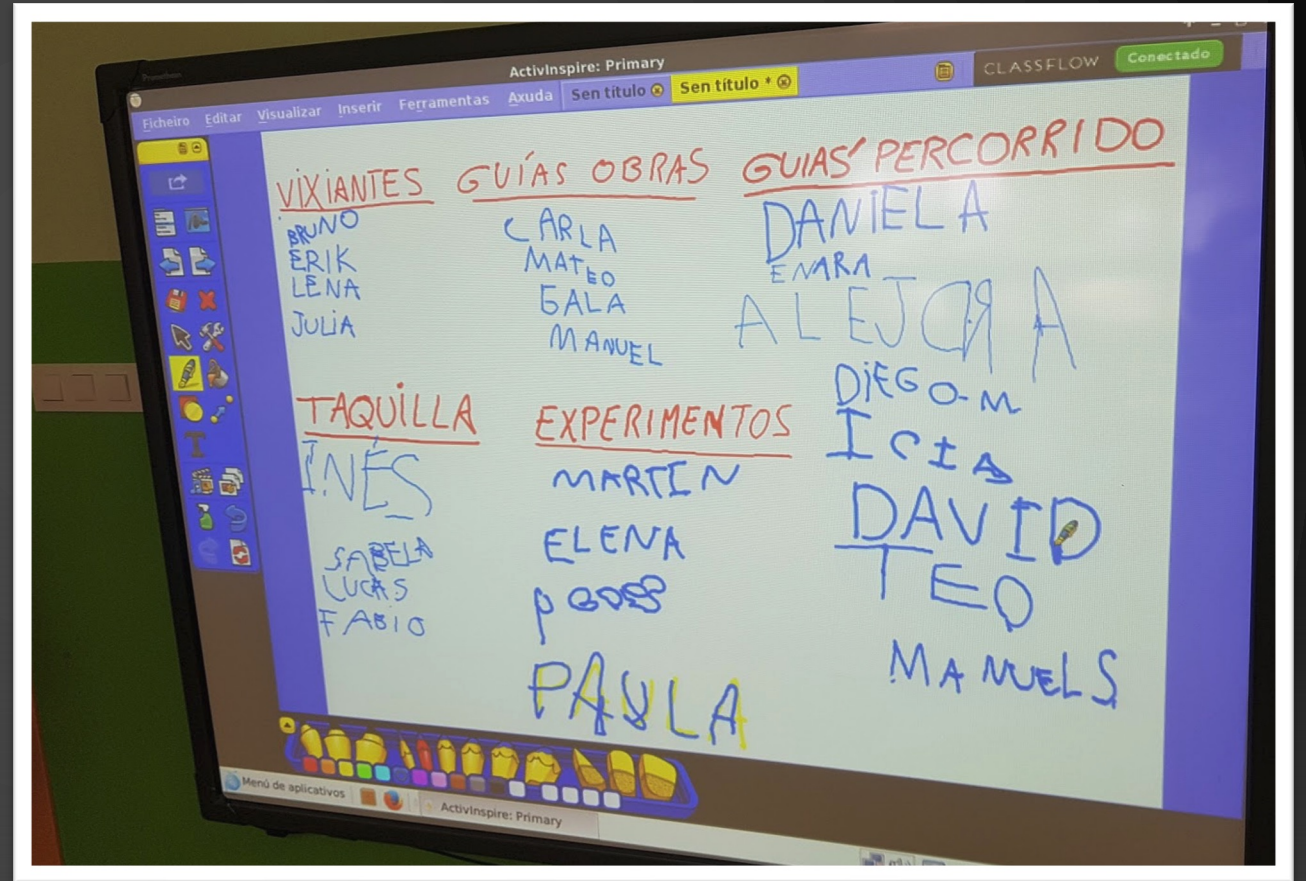 Promethean
ActivInspire: Primary
CLASSFLOW Conectado
Ficheiro Editar Visualizar Inserir Ferramentas Axuda Sen título Sen título *
VIXIANTES
BRUNO
ERIK
LENA
JULIA
GUÍAS OBRAS
CARLA
MATEO
GALA
MANUEL
GUIAS PERCORRIDO
DANIELA
ENARA
DIEGO-M
ICIA
DAVID
TEO
MANUEL S
TAQUILLA
INÉS
SABELA
LUCAS
FABIO
EXPERIMENTOS
MARTIN
ELENA
PAULA
Menú de aplicativos
ActivInspire: Primary